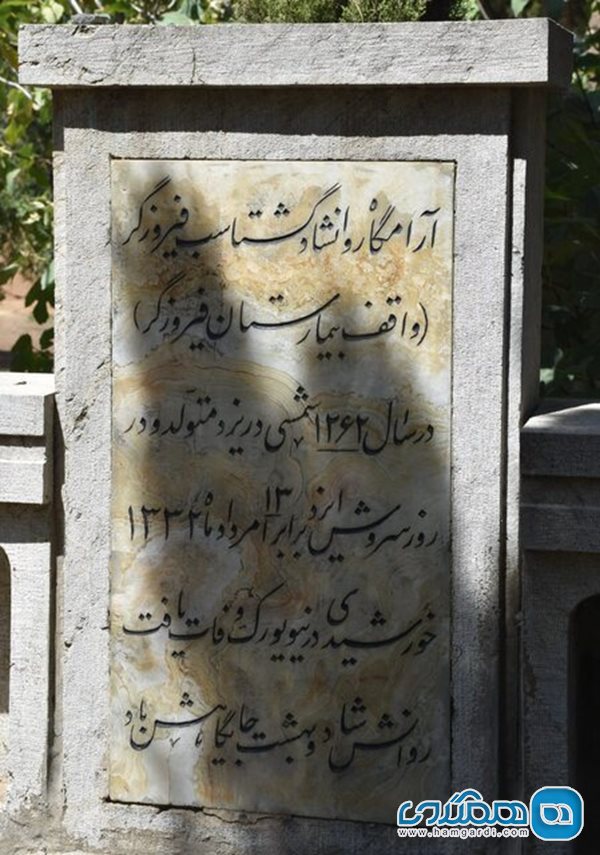 آرامگاه روانشاد گشتاسب فیروزگر
(واقف بیمارستان فیروزگر)
در سال ۱۲۶۲ شمسی در یزد متولد و در
روز سروش ایزد برابر ۱۳ امرداد ماه ۱۳۳۲
خورشیدی در نیویورک وفات یافت
روانش شاد و بهشت جایگاهش باد
همگردی
www.hamgardi.com